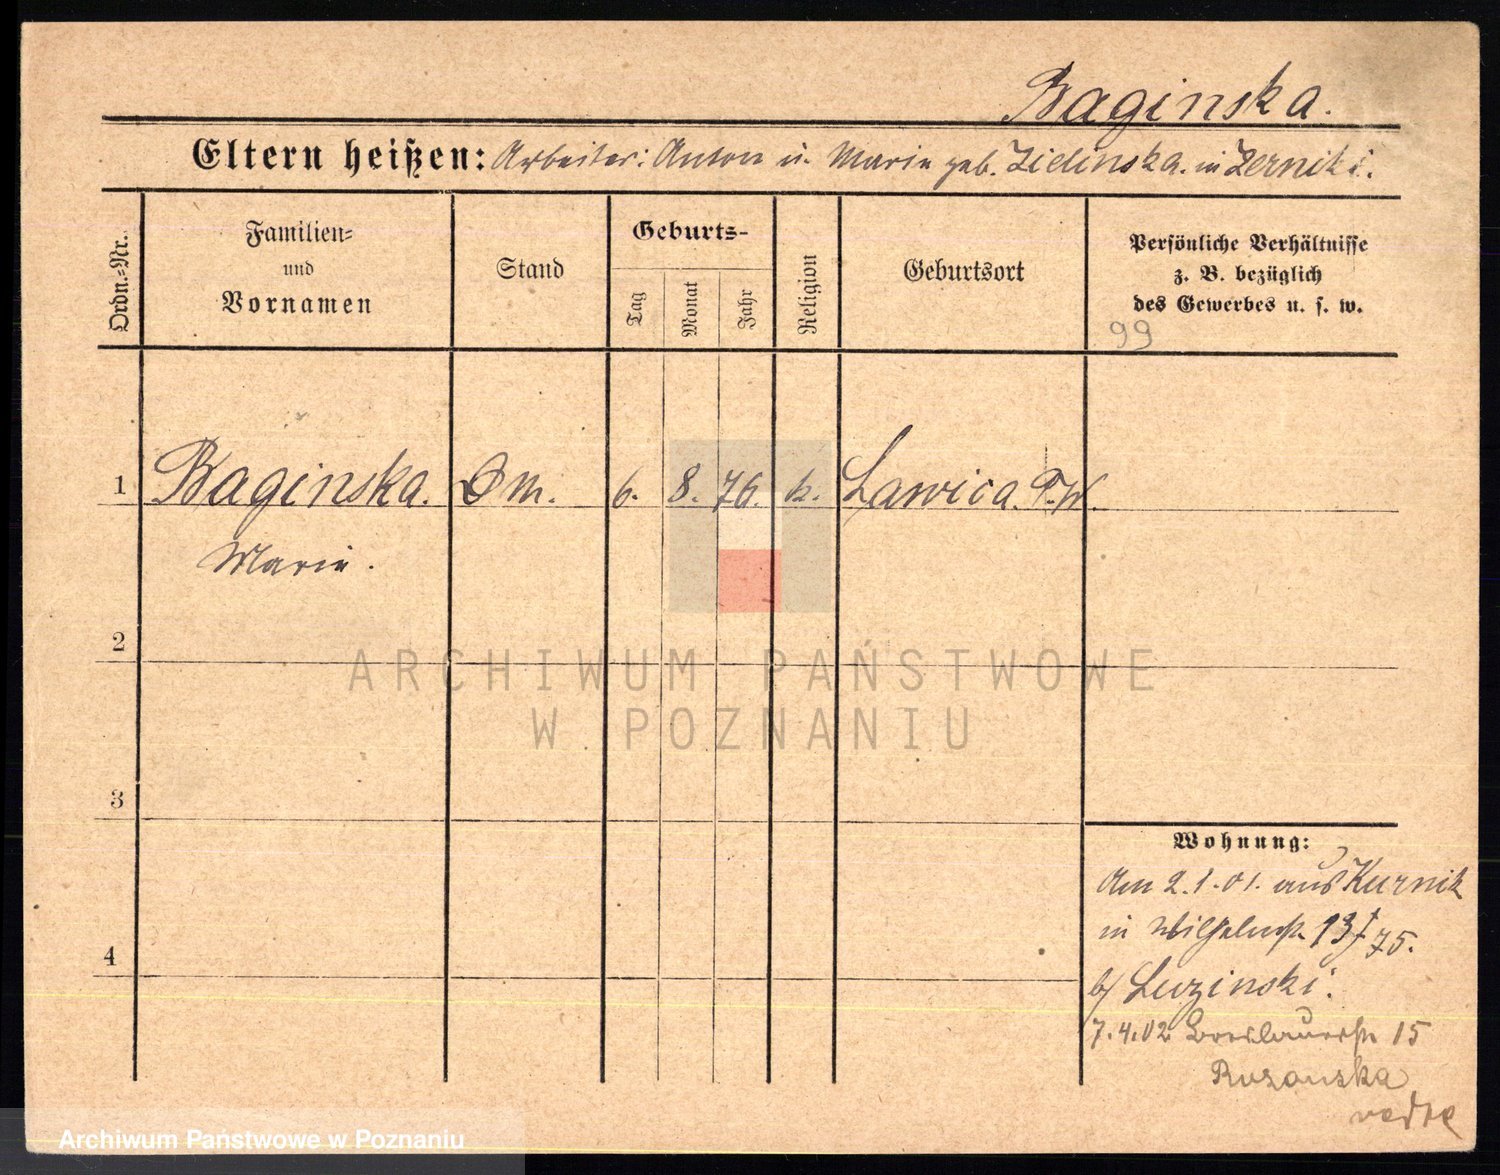 Baginska.
Eltern heißen: Arbeiter: Anton u. Marie geb. Zielinska. in Zerniki.
Ordn.-Nr.
Familien-
und
Vornamen
Stand
Geburts-
Tag
Monat
Jahr
Religion
Geburtsort
Persönliche Verhältnisse
z. B. bezüglich
des Gewerbes u. s. w.
99
1 Baginska. Dm. 6. 8. 76. k. Lawica. P.W.
Marie.
2
ARCHIWUM PAŃSTWOWE
W POZNANIU
3
Wohnung:
Am 2.1.01. aus Kurnik
in Wilhelmstr. 75.
4
b/ Luzinski.
7.4.02 Breslauerstr 15
Archiwum Państwowe w Poznaniu